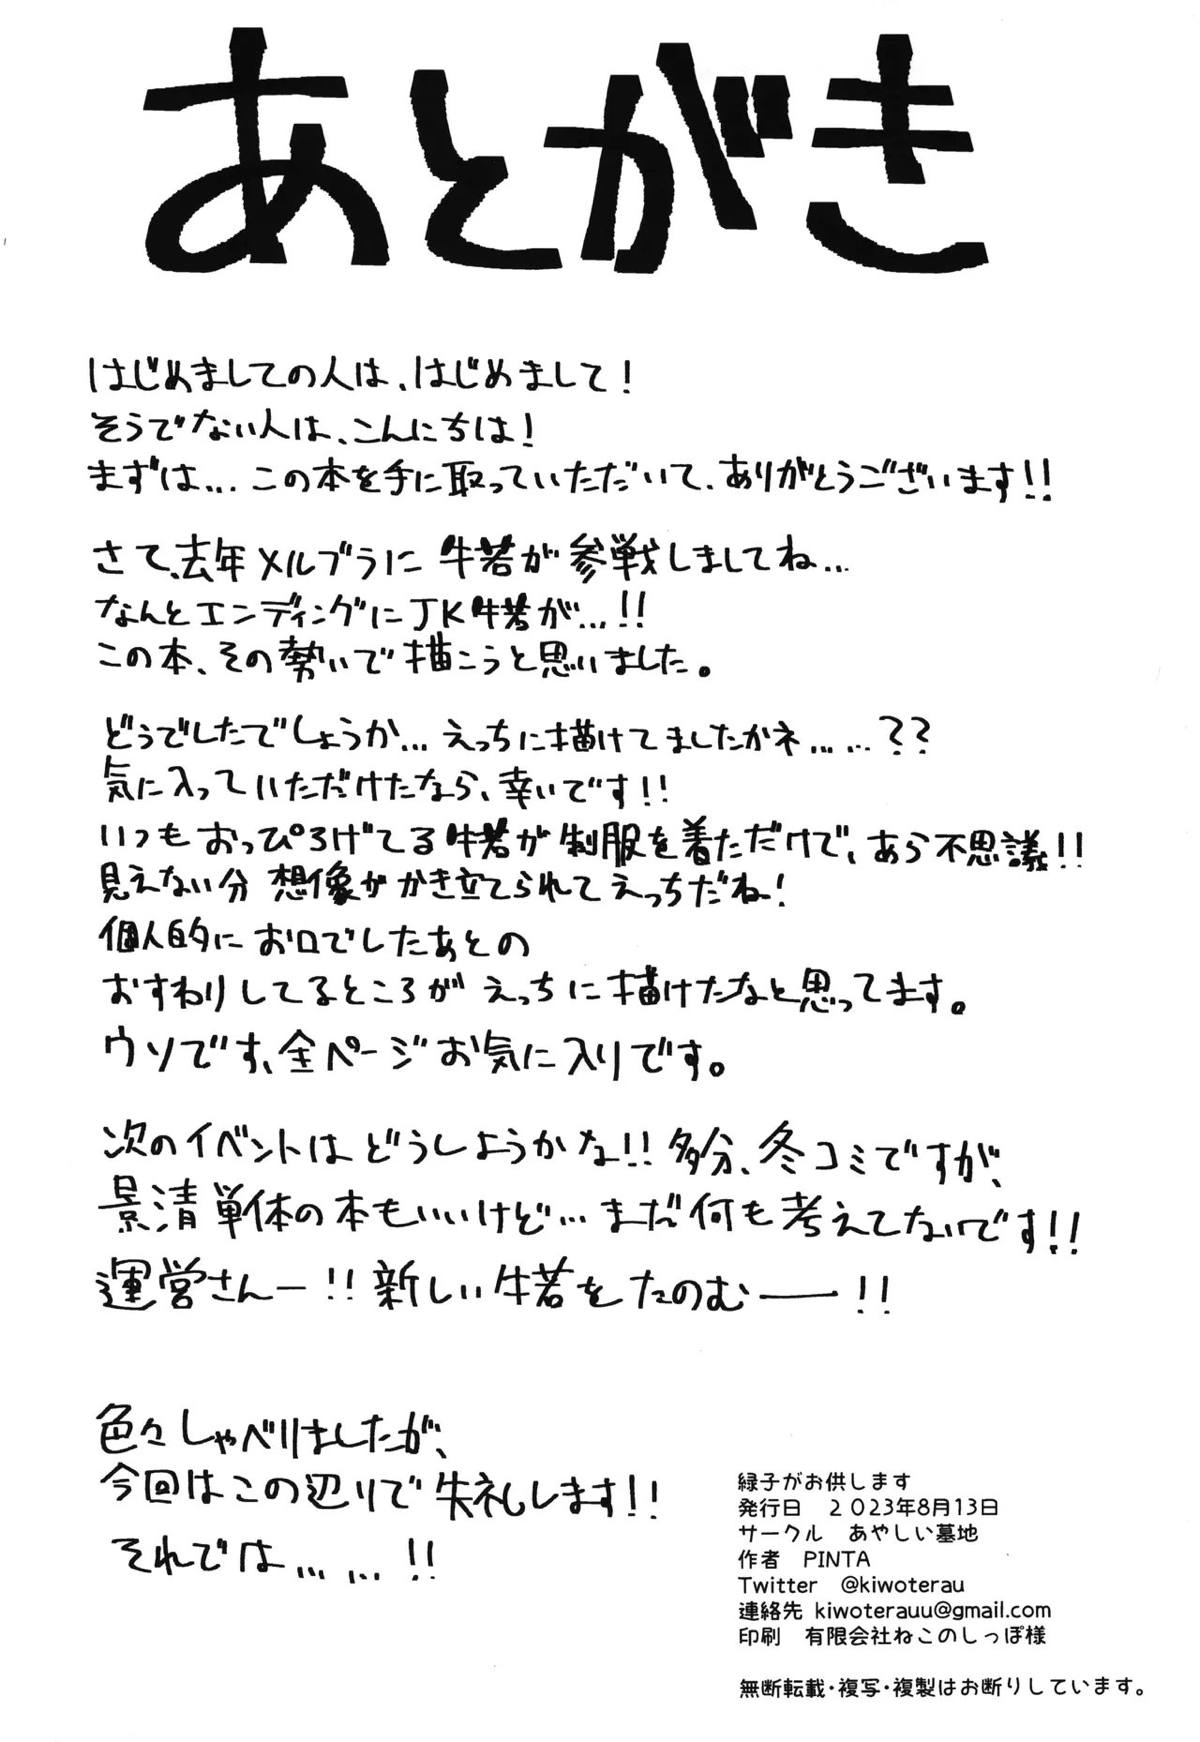 あとがき
はじめましての人は、はじめまして！
そうでない人は、こんにちは！
まずは… この本を手に取っていただいて、ありがとうございます!!
さて、去年メルブラに 牛若が 参戦しましてね…
なんとエンディングにJK牛若が…!!
この本、その勢いで描こうと思いました。
どうでしたでしょうか… えっちに描けてましたかネ……??
気に入っていただけたなら、幸いです!!
いつもおっぴろげてる牛若が制服を着ただけで、あら不思議!!
見えない分 想像が かき立てられてえっちだね!
個人的に お口でしたあとの
おすわりしてるところが えっちに描けたなと思ってます。
ウソです、全ページお気に入りです。
次のイベントは どうしようかな!! 多分、冬コミですが、
景清単体の本もいいけど… まだ何も考えてないです!!
運営さんー!! 新しい牛若をたのむー!!
色々しゃべりましたが、
今回はこの辺りで失礼します!!
それでは……!!
緑子がお供します
発行日　2023年8月13日
サークル　あやしい墓地
作者　PINTA
Twitter　@kiwoterau
連絡先 kiwoterauu@gmail.com
印刷　有限会社ねこのしっぽ様
無断転載・複写・複製はお断りしています。